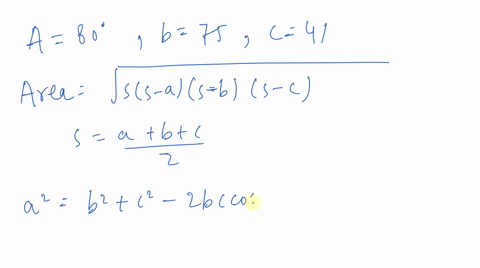 A = 80° , b = 75 , c = 41
Area = √s(s-a)(s-b)(s-c)
s = a+b+c/2
a² = b² + c² - 2bc cos